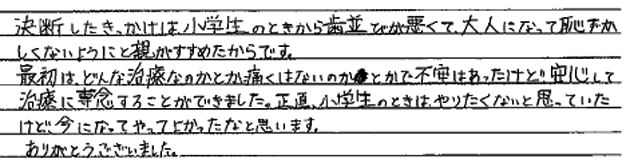 決断したきっかけは、小学生のときから歯並びが悪くて、大人になって恥ずか
しくないようにと親がすすめたからです。
最初は、どんな治療なのかとか痛くはないのかとかで不安はあったけど、安心して
治療に専念することができました。正直、小学生のときは、やりたくないと思っていた
けど、今になってやってよかったなと思います。
ありがとうございました。